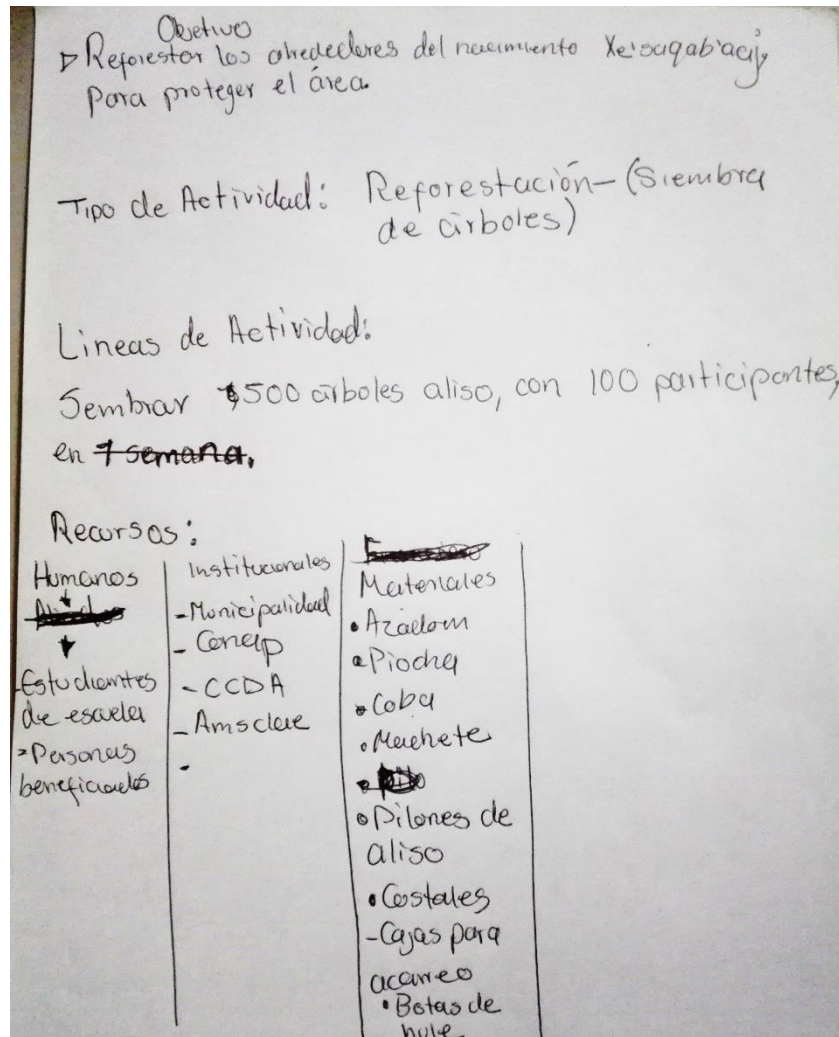 Objetivo
Reforestar los alrededores del nacimiento
Para proteger el área.
Tipo de Actividad: Reforestación- (Siembra
de árboles)
Lineas de Actividad:
Sembrar 500 árboles aliso, con 100 participantes,
en 1 semana.
Recursos:
Humanos
- Estudiantes
de escuela
- Personas
beneficiados
Institucionales
- Municipalidad
- Conap
- CCDA
- Amsclae
-
Materiales
• Azadom
• Piocha
• Coba
• Machete
• Pilones de
aliso
• Costales
- Cajas para
acarreo
• Botas de
hule